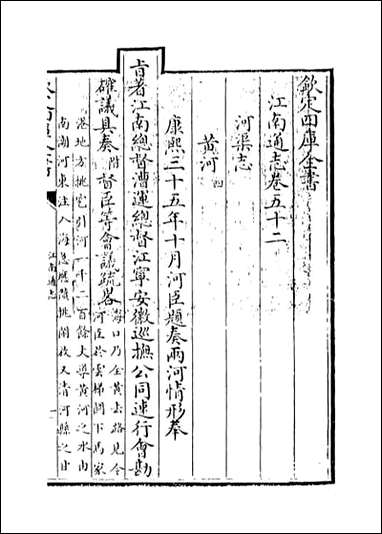 欽定四庫全書
江南通志卷五十二
河渠志
黄河四
康熙三十五年十月河臣題奏兩河情形奉
旨著江南總督漕運總督江寧安徽巡撫公同速行會勘
確議具奏附督臣等會議疏畧海口乃全黄去路見今
河臣於雲梯關下馬家
港地方挑宅引河一千二百餘丈導黄河之水由
南潮河東注入海急應 挑闢收又清河縣之甘
江南通志
一